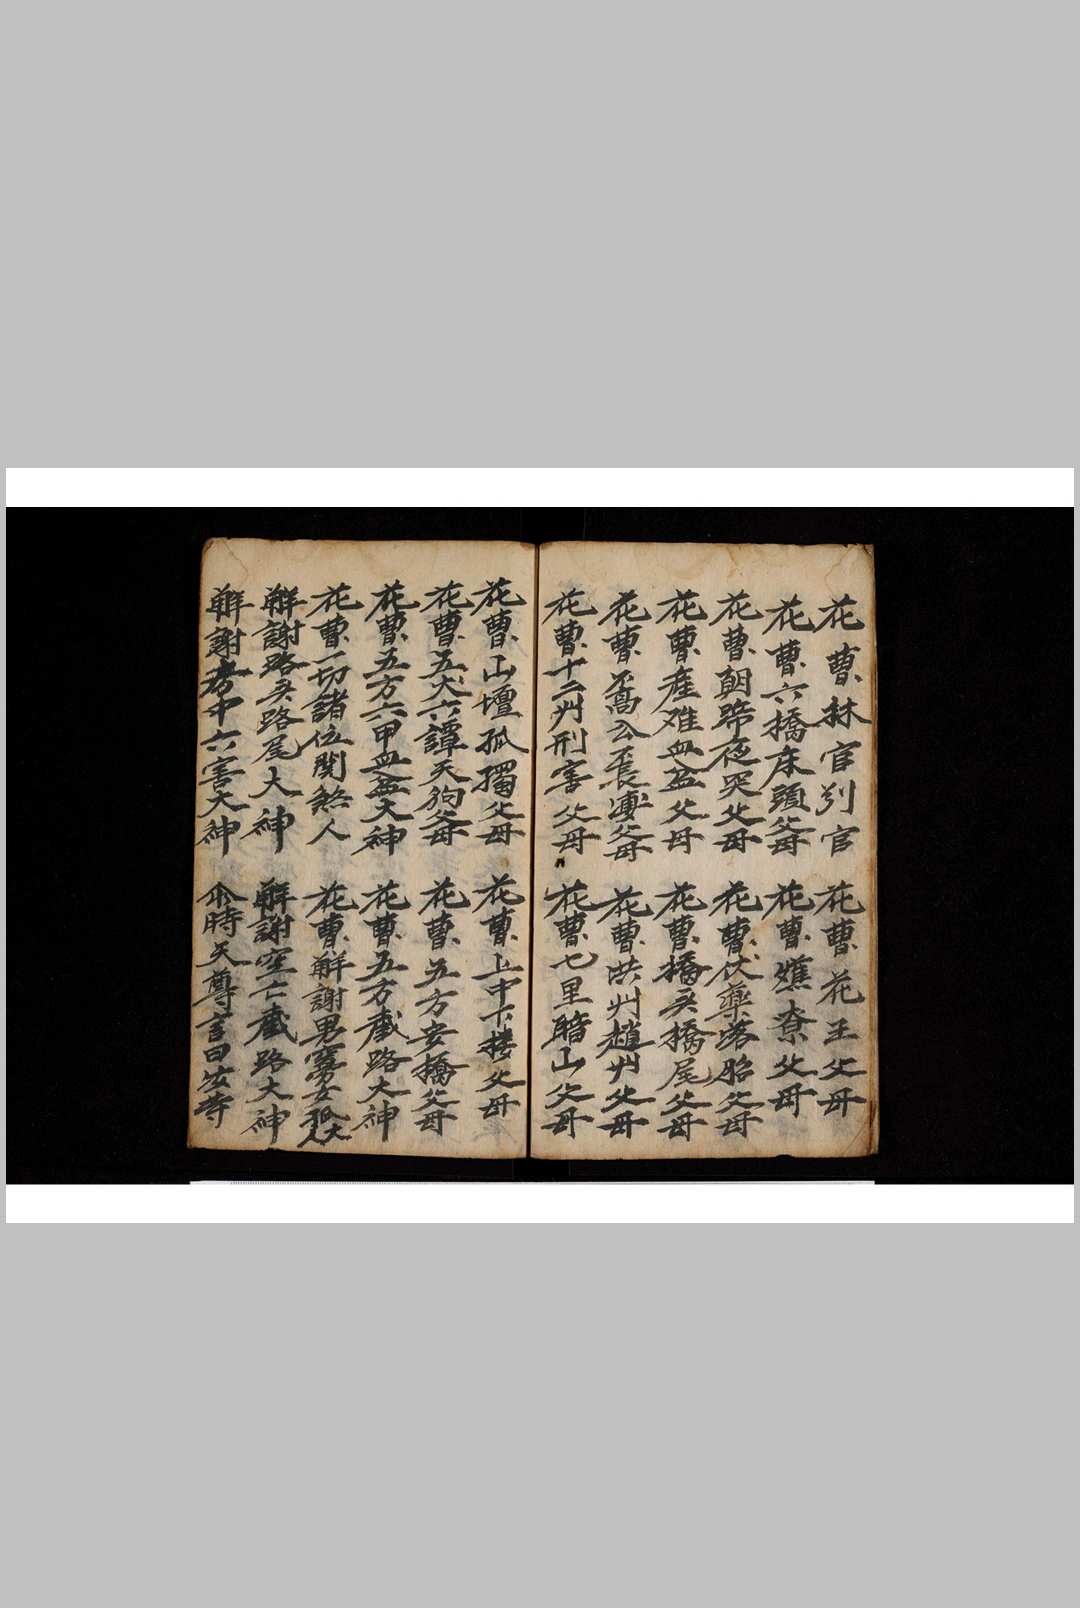 花曹林官別官　花曹花王父母
花曹六橋床頭父母　花曹𤓖寮父母
花曹朝啼夜哭父母　花曹伏藥落胎父母
花曹産难血盆父母　花曹橋头橋尾父母
花曹公父母　花曹洪州趙州父母
花曹十二州刑害父母　花曹七里瞻山父母
花曹山壇孤獨父母　花曹上中下楼父母
花曹五犬六譚天狗父母　花曹五方安橋父母
花曹五方六甲血盆大神　花曹五方截路大神
花曹一切諸位関煞人　花曹解謝男女孤大人
解謝路头路尾大神　解謝空亡截路大神
解謝中六害大神　尒時天尊言曰汝等